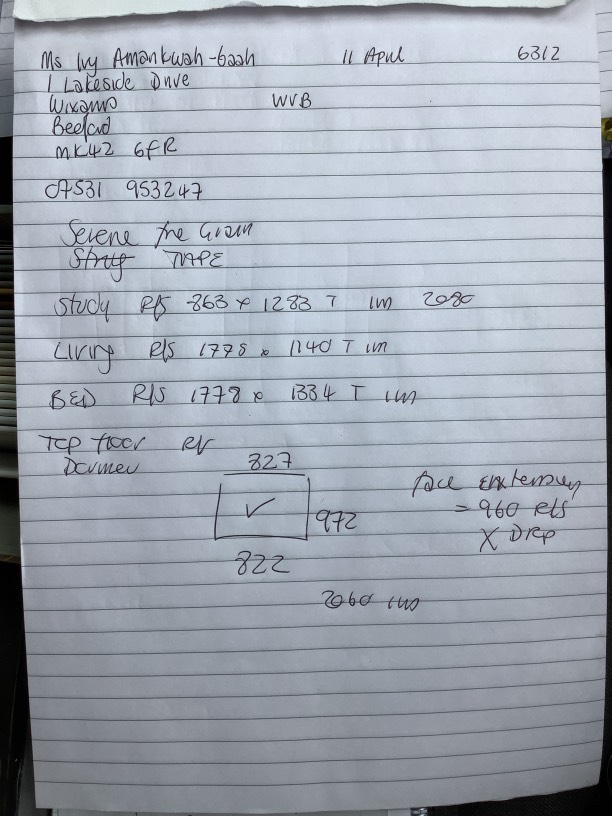 Ms Ivy Amankwah-baah 11 April 6312
1 Lakeside Drive
Wixams WVB
Bedford
MK42 6fR
07531 953247
Serene fine Grain
TAPE
Study R/S 863 x 1283 T im 2080
Living R/S 1778 x 1140 T im
BED R/S 1778 x 1334 T im
Top floor R/S
Dormer
827
972
822
face extension
= 960 R/S
X Drop
2060 im